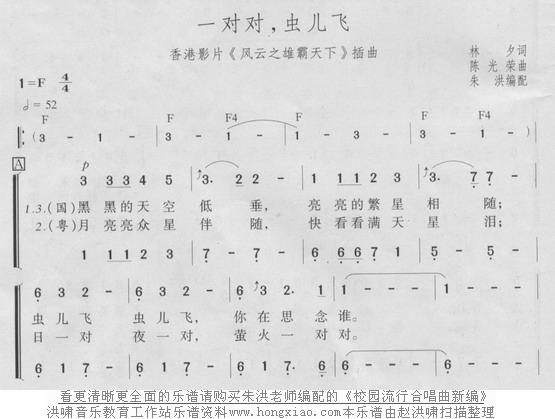 一对对,虫儿飞
香港影片《风云之雄霸天下》插曲
林 夕词
陈光荣曲
朱 洪编配
1=F 4/4
♩=52
F F F4 F F4
( 3 - 1 - 3 - 1 - 1 - 3 - 1 - 3 - 1 - )
A
p
3 3 3 4 5 3. 2 2 - 1 1 1 2 3 3. 7 7 -
1.3.(国)黑 黑的天 空 低 垂, 亮 亮的繁 星 相 随;
2.(粤)月 亮亮众 星 伴 随, 快 看看满 天 星 泪;
1 1 1 2 3 7. 7 7 - 6 6 6 7 1 5 - 5 5
6 3 2 - 6 3 2 - 6 3 2. 1 1 - - -
虫 儿 飞 虫 儿 飞, 你 在 思 念 谁。
日 一 对 夜 一 对, 萤 火 一 对 对。
6 1 7 - 6 1 7 - 6 1 7. 6 6 - - -
看更清晰更全面的乐谱请购买朱洪老师编配的《校园流行合唱曲新编》
洪啸音乐教育工作站乐谱资料www.hongxiao.com本乐谱由赵洪啸扫描整理